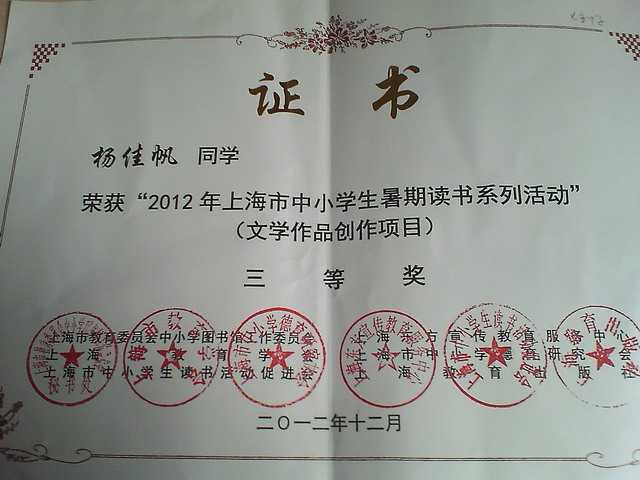 证 书
杨佳帆 同学
荣获“2012年上海市中小学生暑期读书系列活动”
（文学作品创作项目）
三 等 奖
上海市教育委员会中小学图书馆工作委员会 上海东方宣传教育服务中心
上海市教育学会 上海市中小学德育研究会
上海市中小学生读书活动促进 上海教育出版社
二○一二年十二月